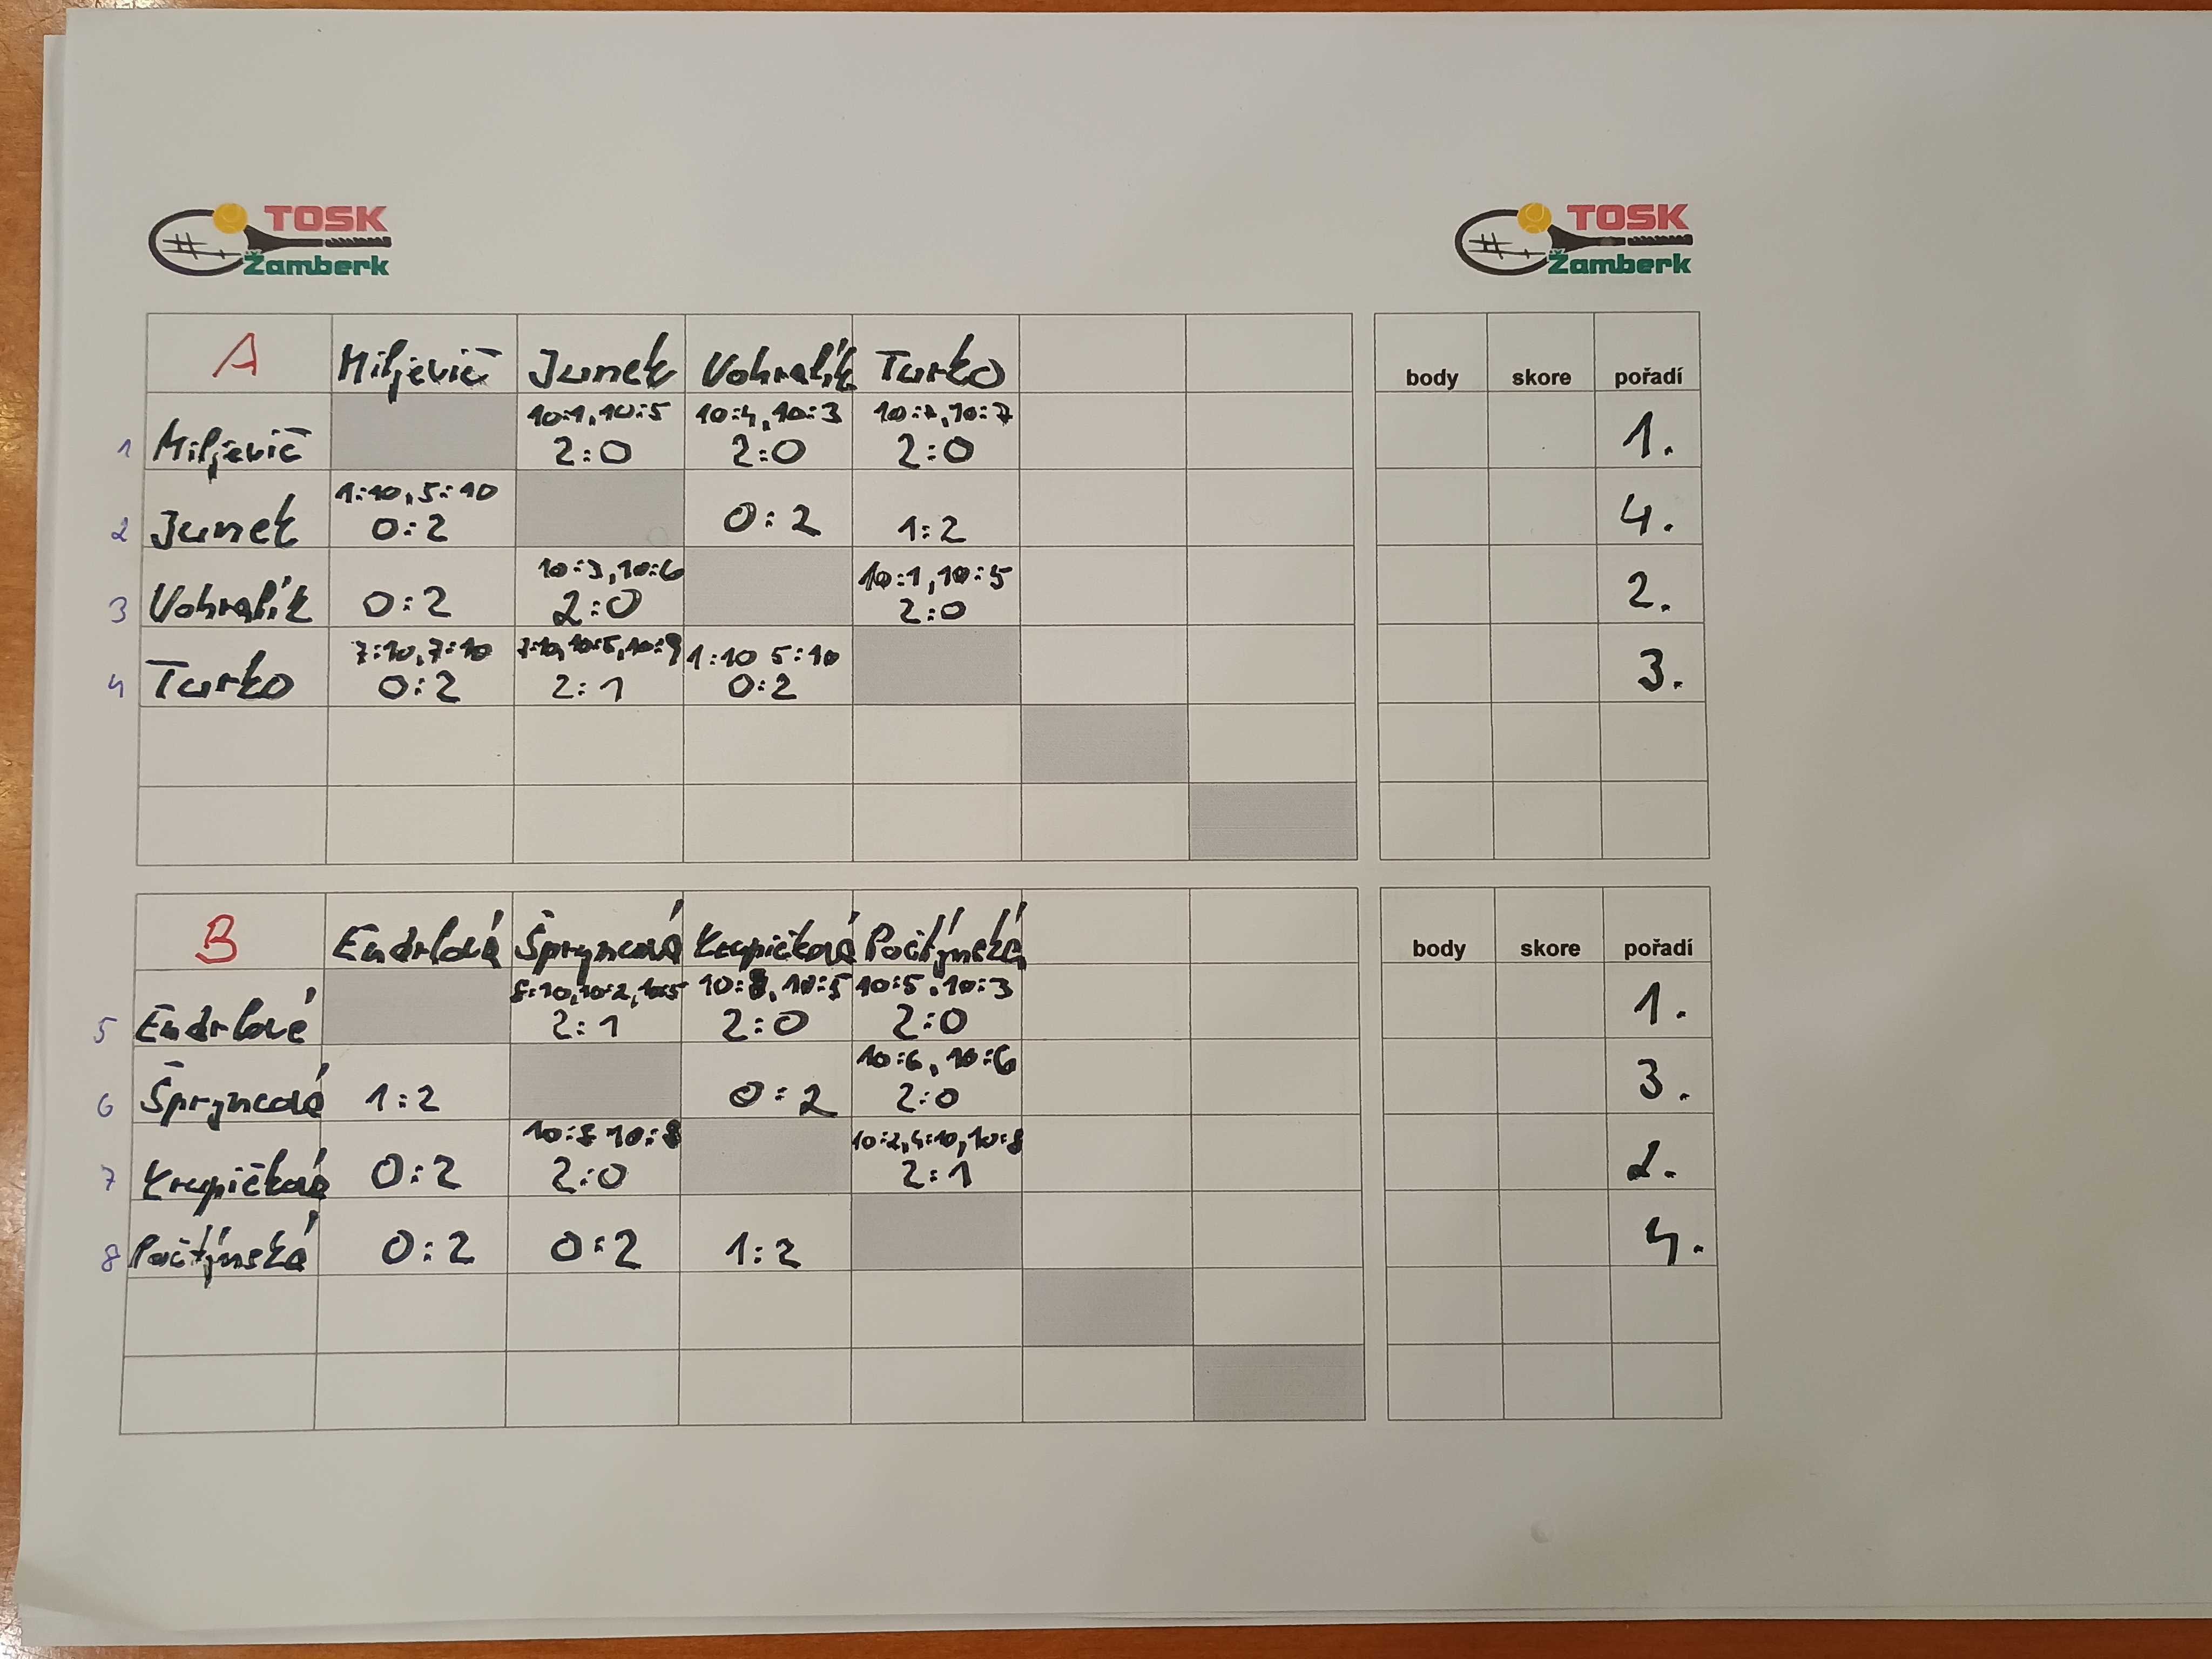 TOSK
Žamberk
TOSK
Žamberk
A Miljevič Junek Vohralík Turko
body skore pořadí
10:1, 10:5 10:4, 10:3 10:7, 10:7
1 Miljevič 2:0 2:0 2:0 1.
1:10, 5:10
2 Junek 0:2 0:2 1:2 4.
10:3, 10:6 10:1, 10:5
3 Vohralík 0:2 2:0 2:0 2.
7:10, 7:10 7:10, 10:5, 10:9 1:10 5:10
4 Turko 0:2 2:1 0:2 3.
B Endrlová Špryncová Krupičková Počtýnská
body skore pořadí
8:10, 10:2, 10:5 10:8, 10:5 10:5, 10:3
5 Endrlová 2:1 2:0 2:0 1.
10:6, 10:6
6 Špryncová 1:2 0:2 2:0 3.
10:8 10:8 10:2, 4:10, 10:8
7 Krupičková 0:2 2:0 2:1 2.
8 Počtýnská 0:2 0:2 1:2 4.